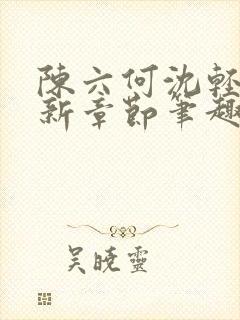 陳六何沈輕
新章節筆趣
吴曉靈